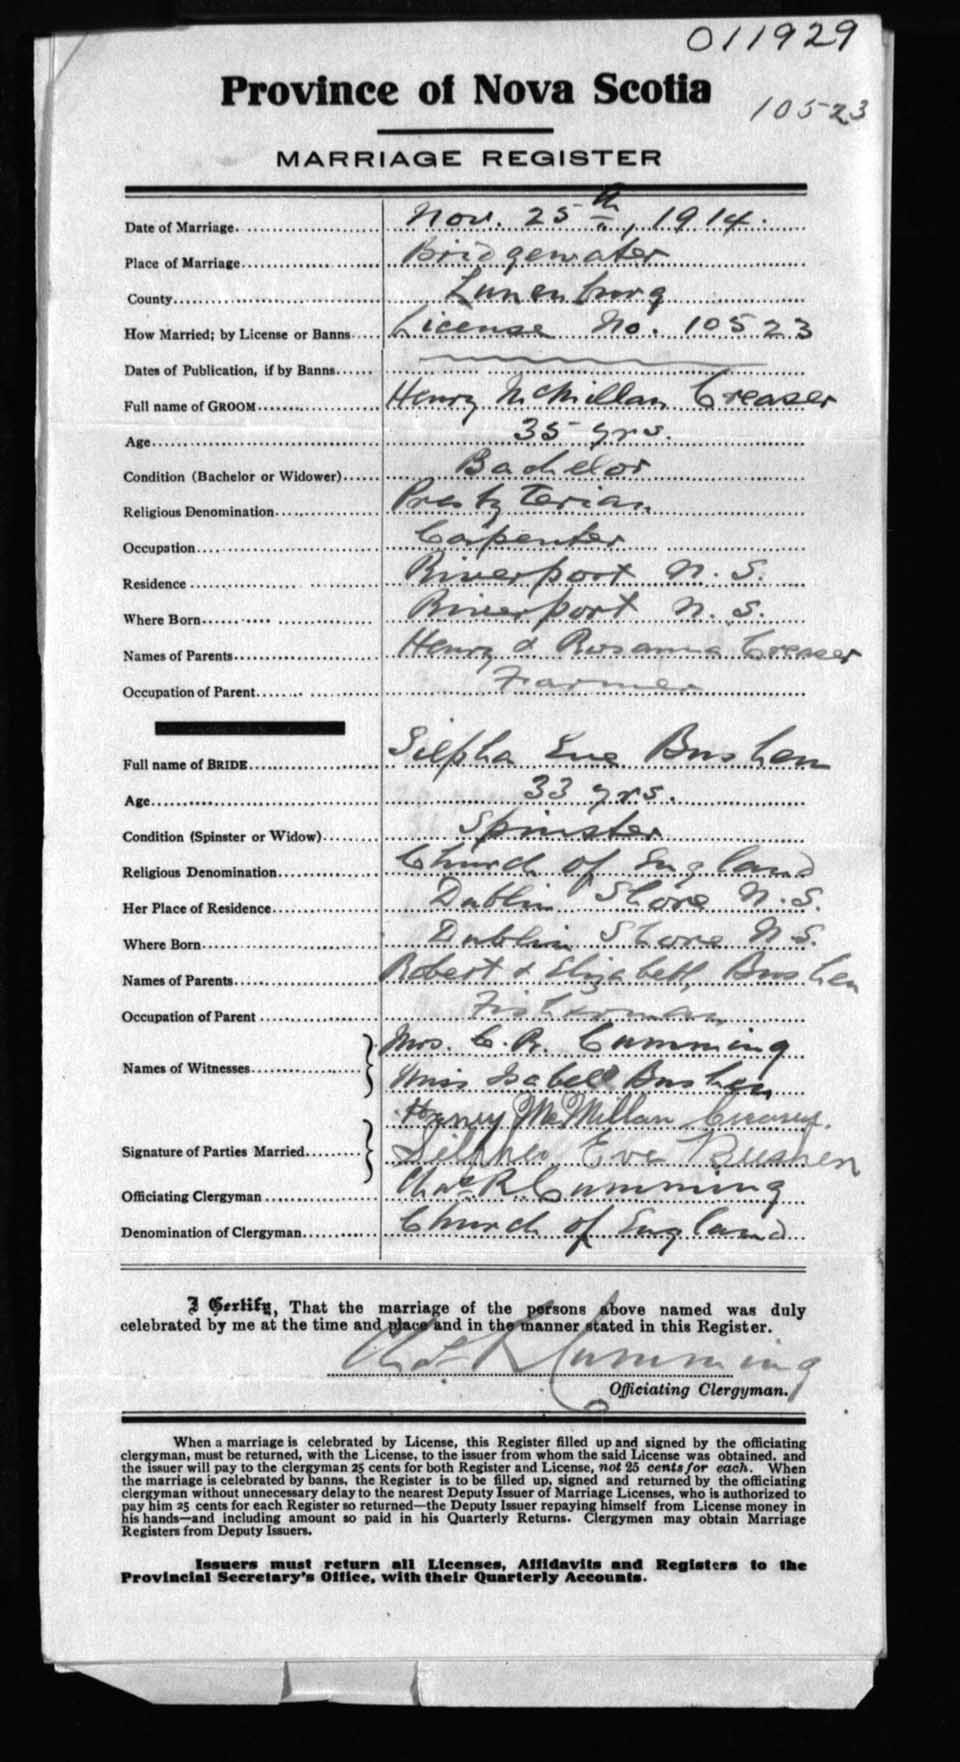 011929
Province of Nova Scotia
10523
MARRIAGE REGISTER
Date of Marriage Nov. 25th, 1914.
Place of Marriage Bridgewater
County Lunenburg
How Married; by License or Banns License No. 10523
Dates of Publication, if by Banns
Full name of GROOM Henry McMillan Creaser
Age 35 yrs.
Condition (Bachelor or Widower) Bachelor
Religious Denomination Presbyterian
Occupation Carpenter
Residence Riverport N. S.
Where Born Riverport N. S.
Names of Parents Henry & Rosanna Creaser
Occupation of Parent Farmer
Full name of BRIDE Silpha Eve Bushen
Age 33 yrs.
Condition (Spinster or Widow) Spinster
Religious Denomination Church of England
Her Place of Residence Dublin Shore N. S.
Where Born Dublin Shore N. S.
Names of Parents Robert & Elizabeth Bushen
Occupation of Parent Fisherman
Names of Witnesses Mrs. C. R. Cumming
Miss Isabel Bushen
Henry McMillan
Signature of Parties Married Eve Bushen
Officiating Clergyman Chas R. Cumming
Denomination of Clergyman Church of England
I Certify, That the marriage of the persons above named was duly
celebrated by me at the time and place and in the manner stated in this Register.
Chas R Cumming
Officiating Clergyman.
When a marriage is celebrated by License, this Register filled up and signed by the officiating
clergyman, must be returned, with the License, to the issuer from whom the said License was obtained, and
the issuer will pay to the clergyman 25 cents for both Register and License, not 25 cents for each. When
the marriage is celebrated by banns, the Register is to be filled up, signed and returned by the officiating
clergyman without unnecessary delay to the nearest Deputy Issuer of Marriage Licenses, who is authorized to
pay him 25 cents for each Register so returned—the Deputy Issuer repaying himself from License money in
his hands—and including amount so paid in his Quarterly Returns. Clergymen may obtain Marriage
Registers from Deputy Issuers.
Issuers must return all Licenses, Affidavits and Registers to the
Provincial Secretary's Office, with their Quarterly Accounts.